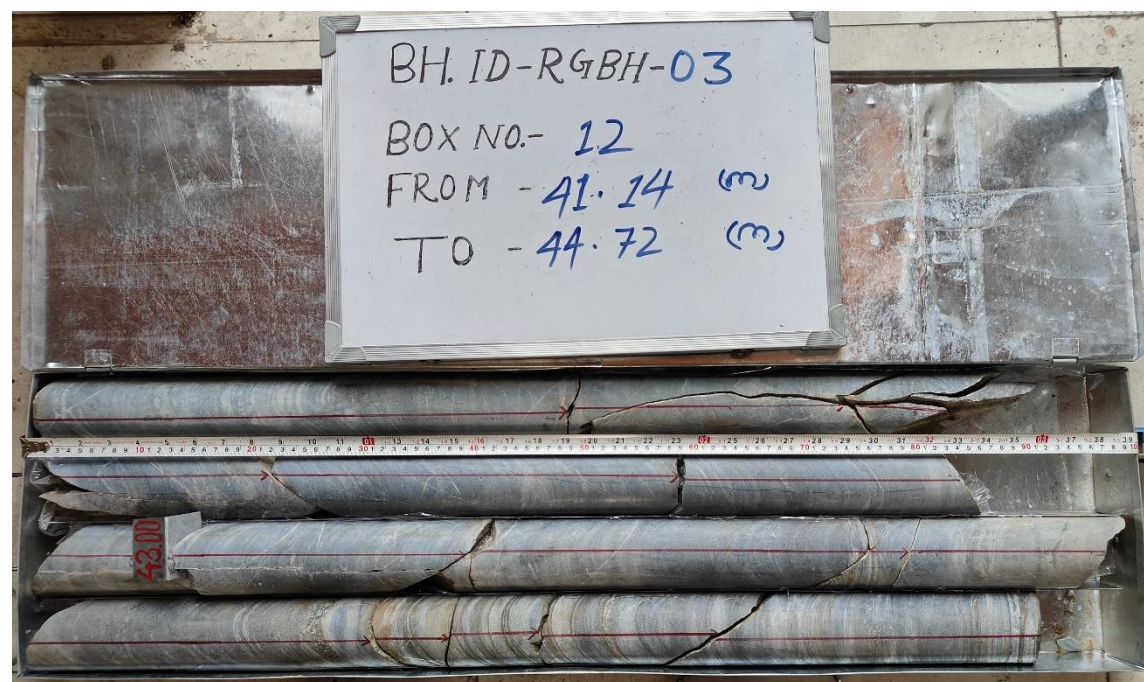 BH. ID-RGBH-03
BOX NO.- 12
FROM - 41.14 (m)
TO - 44.72 (m)
43.00